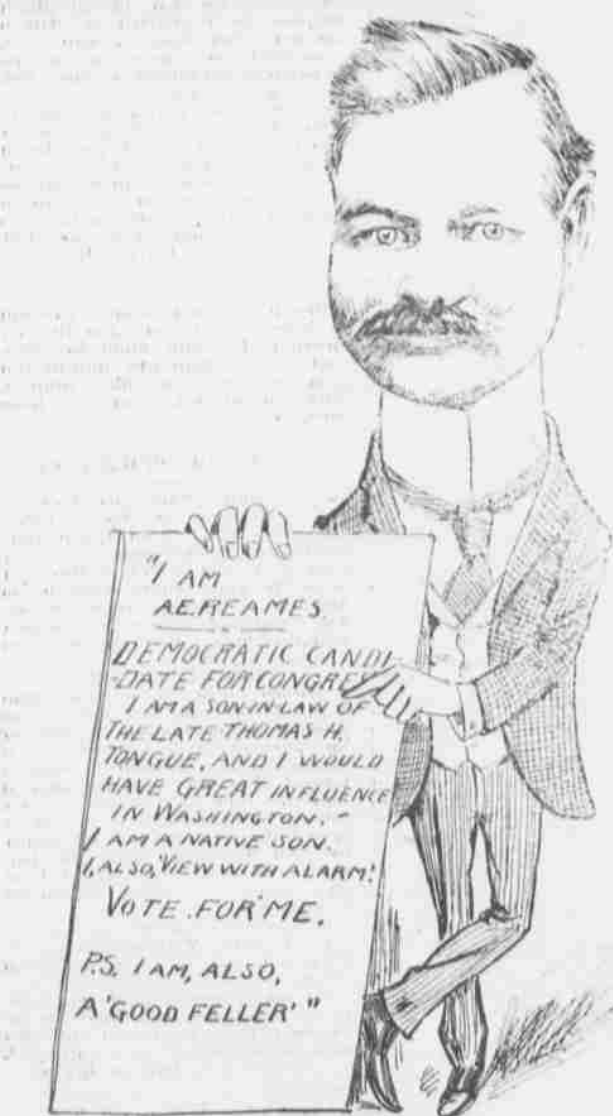 "I AM
A.E. REAMES
DEMOCRATIC CANDI
-DATE FOR CONGRES
I AM A SON-IN-LAW OF
THE LATE THOMAS H.
TONGUE, AND I WOULD
HAVE GREAT INFLUENCE
IN WASHINGTON. -
I AM A NATIVE SON.
I, ALSO, "VIEW WITH ALARM".
VOTE FOR ME.
P.S. I AM, ALSO,
A 'GOOD FELLER' "